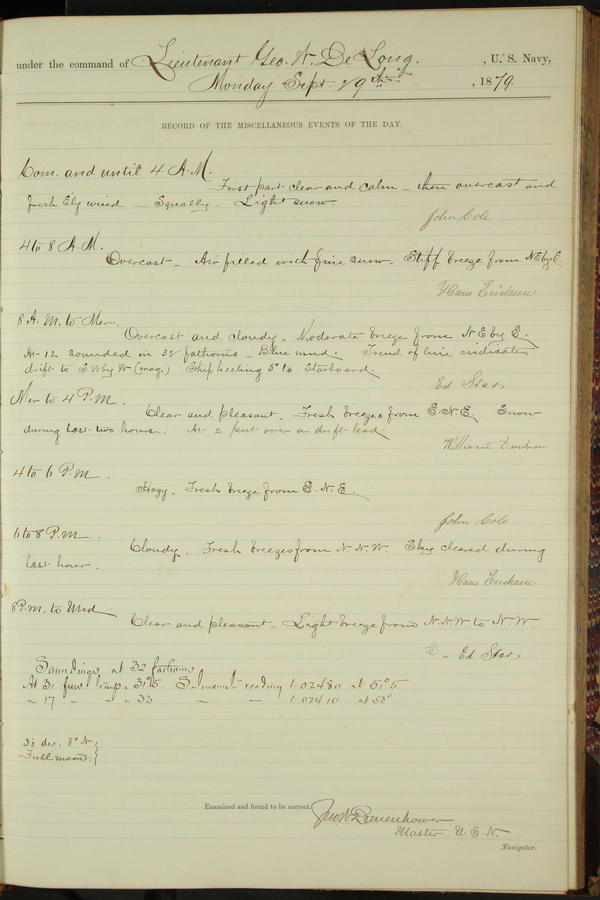 under the command of Lieutenant Geo. W. De Long. , U. S. Navy,
Monday Sept. 29th , 1879.
RECORD OF THE MISCELLANEOUS EVENTS OF THE DAY.
Com. and until 4 A.M.
First part clear and calm - then overcast and
fresh Ely wind - Squally. Light snow.
John Cole
4 to 8 A.M.
Overcast - Air filled with fine snow. Stiff breeze from NEbyE.
Hans Erichsen
8 A.M. to Mer.
Overcast and cloudy. Moderate breeze from NEbyE.
At 12 sounded in 32 fathoms - Blue mud. Trend of line indicates
drift to SWbyW (mag.) Ship heeling 5° to Starboard.
Ed Starr
Mer to 4 P.M.
Clear and pleasant. Fresh breezes from E.N.E. Snow
during last two hours. At 2 put over a drift lead.
William Dunbar
4 to 6 P.M.
Hazy. Fresh breeze from E.N.E.
John Cole
6 to 8 P.M.
Cloudy. Fresh breezes from N.N.W. Sky cleared during
last hour.
Hans Erichsen
8 P.m. to Mid
Clear and pleasant - Light breeze from N.N.W. to N.W.
Ed Starr
Soundings at 32 fathoms
At 31 fms temp = 31.5 reading 1.02480 at 51.5
" 17 " " = 33 " " 1.02410 at 50°
D's dec. 8° N
Full moon }
Examined and found to be correct.
Jno W Danenhower
Master, U.S.N.
Navigator.